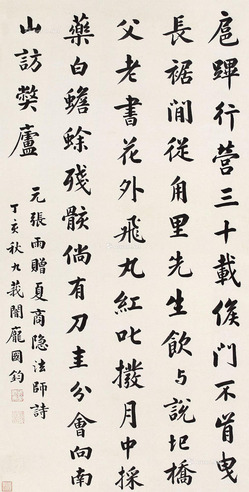 扈蹕行營三十載侯門不肯曳
長裾閒從甪里先生飲与說圯橋
父老書花外飛丸紅叱撥月中採
藥白蟾蜍殘骸倘有刀圭分會向南
山訪獘廬
元張雨贈夏商隐法師詩
丁亥秋九莪闇龐國鈞